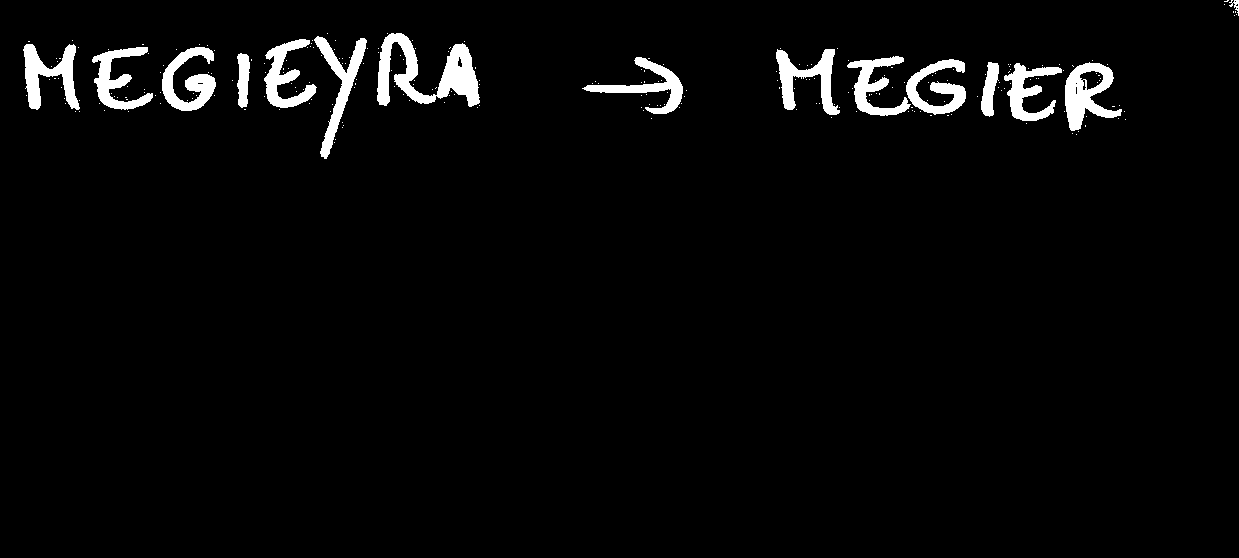 MEGIEYRA → MEGIER